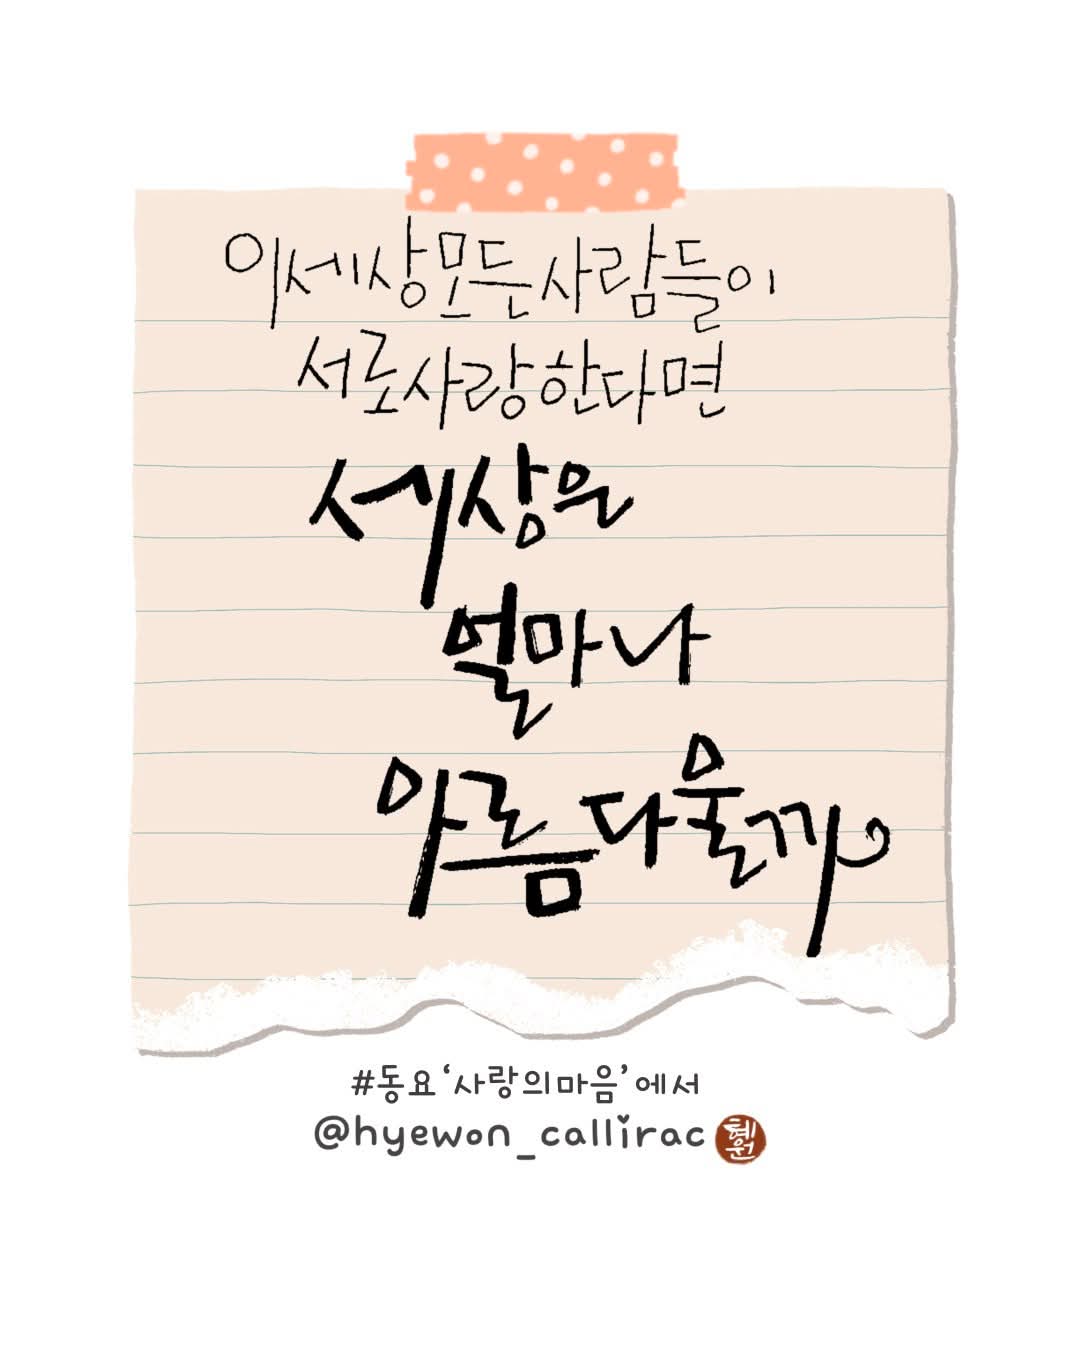 이세상모든사람들이
서로사랑한다면
세상은
얼마나
아름다울까
#동요‘사랑의마음’에서
@hyewon_callirac
혜원